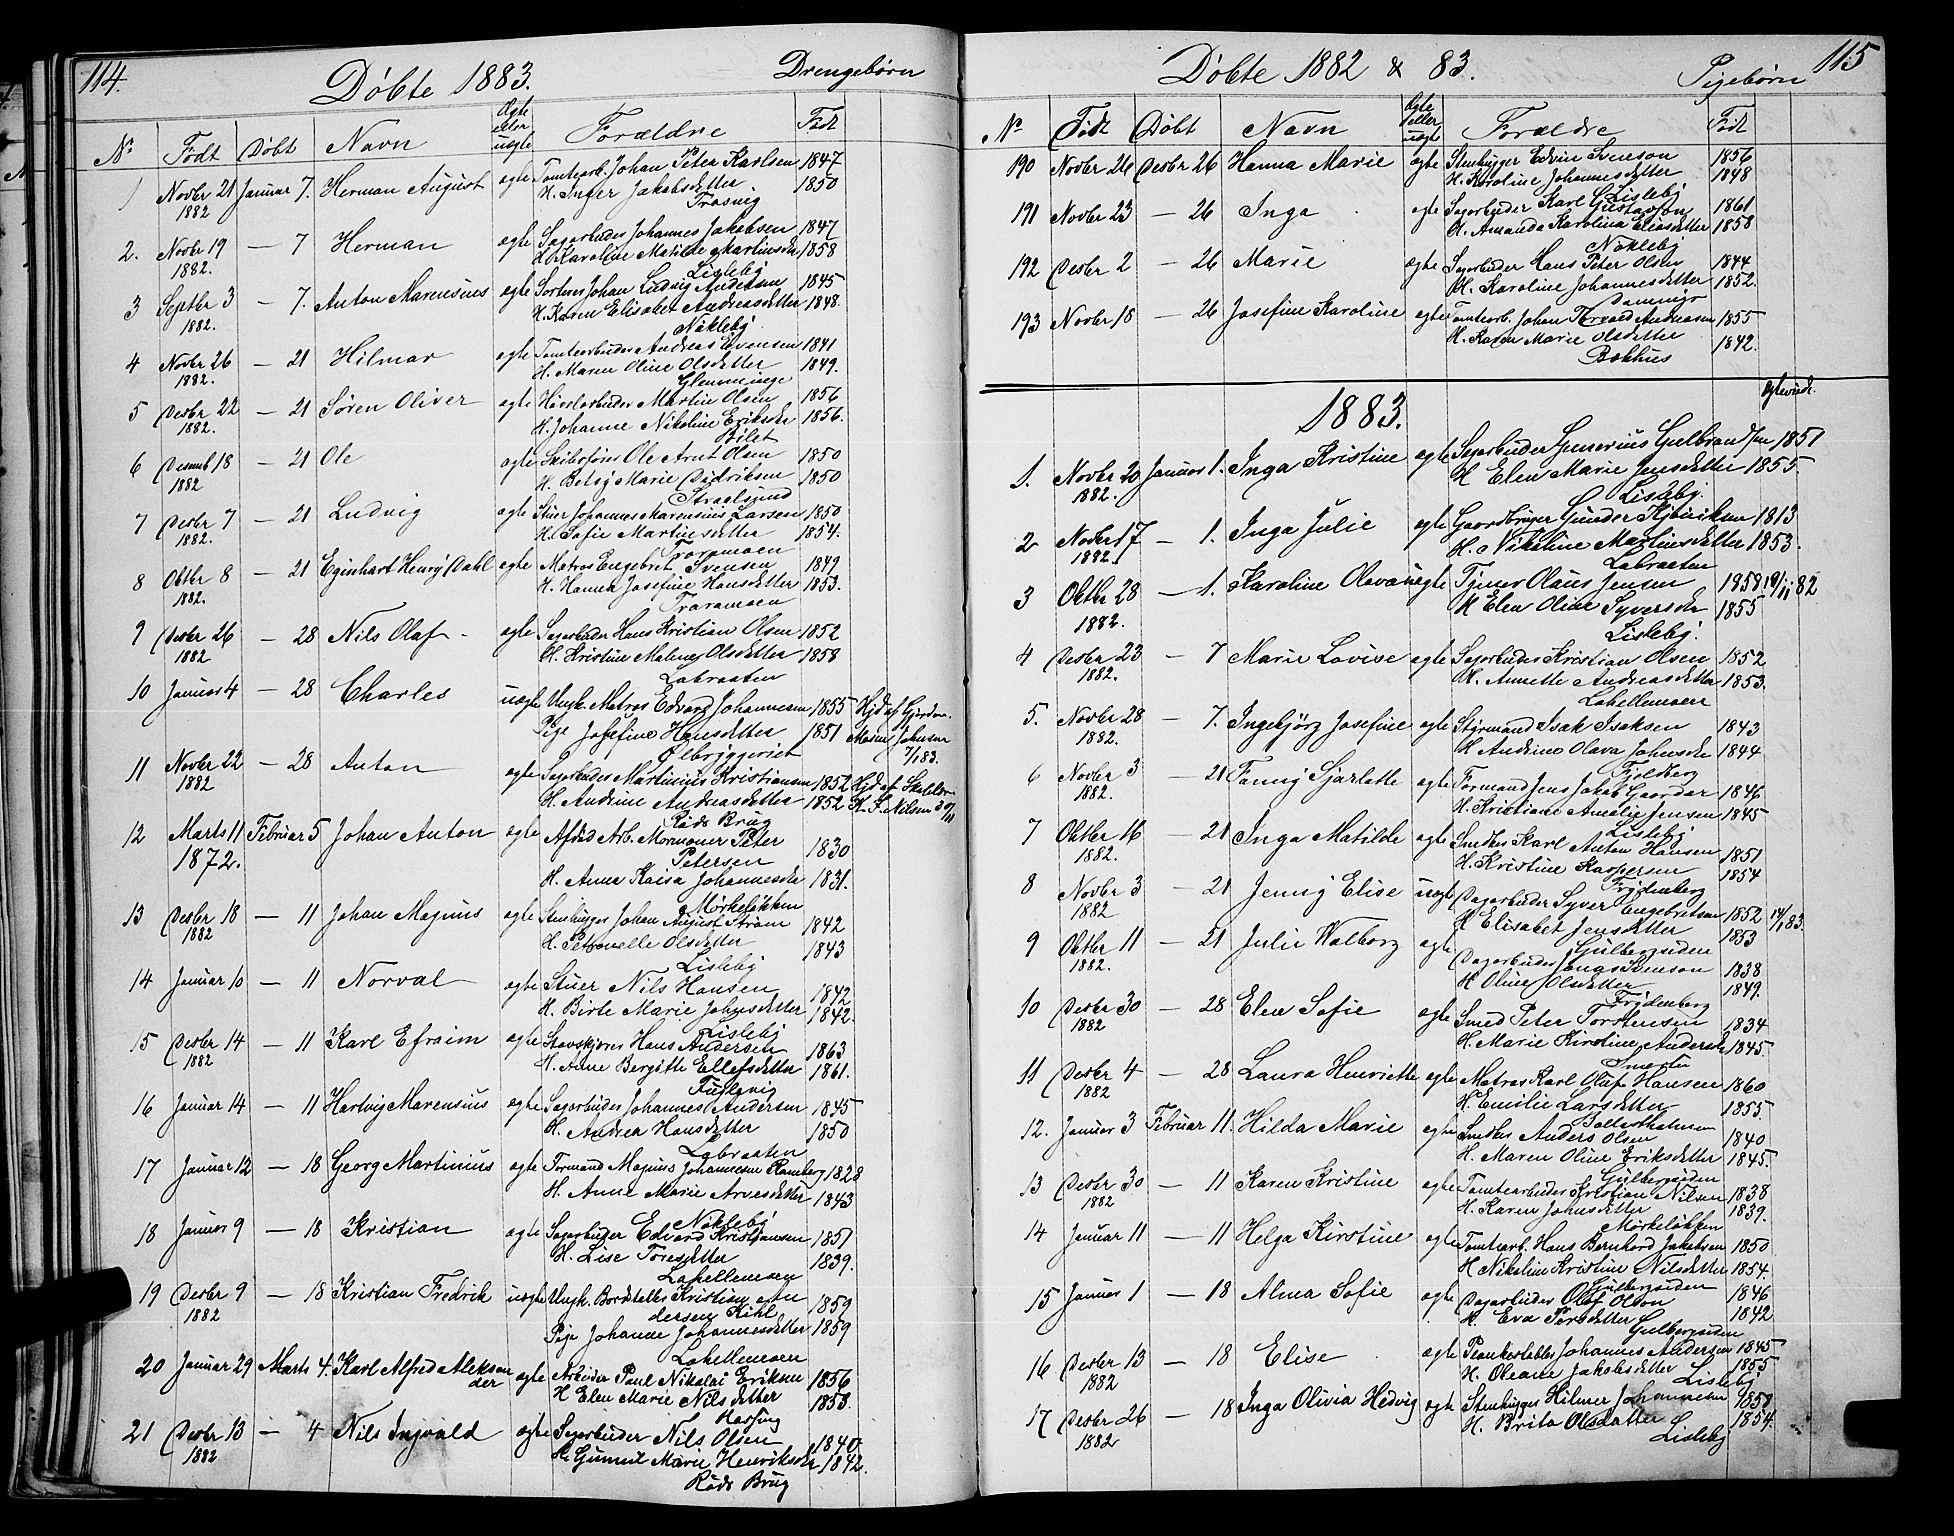 114.
Døbte 1883.
Drengebørn
No Født Døbt Navn Ægte eller uægte Forældre Født
1 Novbr 21 Januar 7. Herman August ægte Tomtearb. Johan Peter Karlsen 1847
1882 H. Inger Jakobsdetter 1850
Trosvig
2. Novbr 19 — 7 Herman ægte Sagarbeider Johannes Jakobsen 1847
1882. H. Karoline Matilde Martinsdr 1858
Lisleby
3 Septbr 3 — 7. Anton Marensius ægte Sorterer Johan Ludvig Andersen 1845
1882. H. Karen Elisabet Andreasdetter 1848.
Nøkleby
4 Novbr 26 — 21 Hilmar ægte Tomtearbeider Andreas Evensen 1841
1882. H. Maren Oline Olsdetter 1849.
Glemminge
5 Desbr 22 — 21 Søren Oliver ægte Høvelarbeider Martin Olsen 1856
1882. H. Johanne Nikoline Eriksdr 1856.
Bilet
6 Desmb 18 — 21 Ole ægte Skibsfører Ole Arnt Olsen 1850
1882 H. Betsy Marie Didriksen 1850
Straalsund
7 Desbr 7 — 21 Ludvig ægte Stuer Johannes Marensius Larsen 1850
1882. H. Sofie Martinsdetter 1854.
Traramoen
8 Oktbr 8 — 21 Eginhart Henry Dahl ægte Matros Engebret Svensen 1849
1882. H. Hanna Josefine Hansdetter 1853.
Traramoen
9 Desbr 26 — 28 Nils Olaf ægte Sagarbeider Hans Kristian Olsen 1852
1882 H. Kristine Malene Olsdetter 1858
Labraaten
10 Januar 4 — 28 Charles uægte Ungk. Matros Edvard Johannesen 1855 Hjd af Gjordm.
Pige Josefine Hansdetter 1851 Maren Johnsen
Ølbryggeriet 7/1 83.
11 Novbr 22 — 28 Anton ægte Sagarbeider Martinius Kristiansen 1852 Hjd af
1882 H. Andrine Andreasdetter 1852 K. S. Nilsen 30/11
Røds Brug
12 Marts 11 Februar 5 Johan Anton ægte Afskd Arb. Mormoner Peter
1872. Petersen 1830
H. Anna Kaisa Johannesdr 1831.
Mørkeløkken
13 Desbr 18 — 11 Johan Magnus ægte Stenhugger Johan August Strøm 1842
1882 H. Petronelle Olsdetter 1843
Lisleby
14 Januar 10 — 11 Norval ægte Stuer Nils Hansen 1842
H. Birte Marie Johnsdetter 1842.
Lisleby
15 Desbr 14 — 11 Karl Efraim ægte Stavskjører Hans Andersen 1863
1882 H. Anne Bergitte Ellefsdetter 1861.
Fuglevig
16 Januar 14 — 11 Hartvig Marensius ægte Sagarbeider Johannes Andersen 1845
H. Andrea Hansdetter 1850
Labraaten
17 Januar 12 — 18 Georg Martinius ægte Formand Magnus Johannesen Ramberg 1828
H. Anne Marie Arnesdetter 1843
Nøkleby
18 Januar 9 — 18 Kristian ægte Sagarbeider Edvard Kristiansen 1851
H. Lise Toresdetter 1839.
Lahellemoen
19 Desbr 9 — 18 Kristian Fredrik uægte Ungk. Bordtelles Kristian An
1882 dersen Kihl 1859
Pige Johanne Johannesdetter 1859
Lahellemoen
20 Januar 29 Marts 4. Karl Alfred Aleksan ægte Arbeider Paul Nikolai Eriksen 1856
der H Elen Marie Nilsdetter 1858.
21 Desbr 13 — 4 Nils Ingvald ægte Sagarbeider Nils Olsen 1840
1882 H. Gunnil Marie Henriksdr 1842.
Røds Brug
Døbte 1882 & 83.
Pigebørn
115
No Født Døbt Navn Ægte eller uægte Forældre Født
190 Novbr 26 Desbr 26 Hanna Marie ægte Stenhugger Edvin Svenson 1856
H. Karoline Johannesdetter 1848
Lisleby
191 Novbr 23 — 26 Inga ægte Sagarbeider Karl Gustafson 1861
H. Amanda Karolina Eliasdetter 1858
Nøkleby
192 Desbr 2 — 26 Marie ægte Sagarbeider Hans Peter Olsen 1844
H. Karoline Johannesdetter 1852.
193 Novbr 18 — 26 Josefine Karoline ægte Tomtearb. Johan Torvald Andreasen 1855
H. Karen Marie Olsdetter 1842.
Bakhus
1883.
1. Novbr 20 Januar 1. Inga Kristine ægte Sagarbeider Gunerius Gulbrandsen 1851
1882. H Elen Marie Jensdetter 1855.
Lisleby.
2 Novbr 17 — 1. Inga Julie ægte Gaardbruger Gunder Henriksen 1813
1882. H. Nikoline Martinsdetter 1853.
Labraaten
3 Oktbr 28 — 1. Karoline Olava uægte Tjener Olaus Jensen 1858 19/11 82
1882. H Elen Oline Syversdr 1855
Lisleby.
4 Desbr 23 — 7 Marie Lovise ægte Sagarbeider Kristian Olsen 1852
1882. H. Annette Andreasdetter 1853.
Lahellemoen
5. Novbr 28 — 7. Ingebjörg Josefine ægte Styrmand Isak Isaksen 1843
1882. H Andrine Olava Johnsdr 1844
Fjeldberg
6 Novbr 3 — 21 Fanny Sjarlotte ægte Formand Jens Jakob Gaarder 1846
1882. H. Kristiane Amalie Jensen 1845
Lisleby
7 Oktbr 16 — 21 Inga Matilde ægte Smedker Karl Anton Hansen 1851
1882. H. Kristine Kaspersen 1854
Frydenberg
8 Novbr 3 — 21 Jenny Elise uægte Dagarbeider Syver Engebretsen 1852 14/1 83.
1882 H Elisabet Jensdetter 1853
Gulbergsiden
9 Oktbr 11 — 21 Julie Valborg ægte Dagarbeider Jonas Svenson 1838
1882. H Oline Olsdetter 1849.
Frydenberg
10 Desbr 30 — 28 Elen Sofie ægte Smed Peter Torstensen 1834
1882 H. Marie Kirstine Andersdr 1845.
Smerten
11 Desbr 4 — 28 Laura Henriette ægte Matros Karl Olaf Hansen 1860
1882 H. Emilie Larsdetter 1855.
12. Januar 3 Februar 11. Hilda Marie ægte Smedker Anders Olsen 1840
H. Maren Oline Eriksdetter 1845.
Gulbergsiden
13 Desbr 30 — 11 Karen Kristine ægte Tomtearbeider Kristian Nilsen 1838
1882 H. Karen Johnsdetter 1839.
Mørkeløkken
14 Januar 11 — 11 Helga Kirstine ægte Tomtearb. Hans Bernhard Jakobsen 1850
H Nikoline Kristine Nilsdetter 1854.
Gulbergsiden
15 Januar 1 — 18 Alma Sofie ægte Dagarbeider Olof Olson 1846
H. Eva Persdetter 1842
Gulbergsiden
16 Desbr 13 — 18 Elise ægte Plankestabler Johannes Andersen 1845
1882 H. Oleane Jakobsdetter 1855
Lisleby
17 Desbr 26 — 18 Inga Olivia Hedvig ægte Stenhugger Hilmer Johannesen 1858
1882 H. Brita Olsdatter 1854.
Lisleby